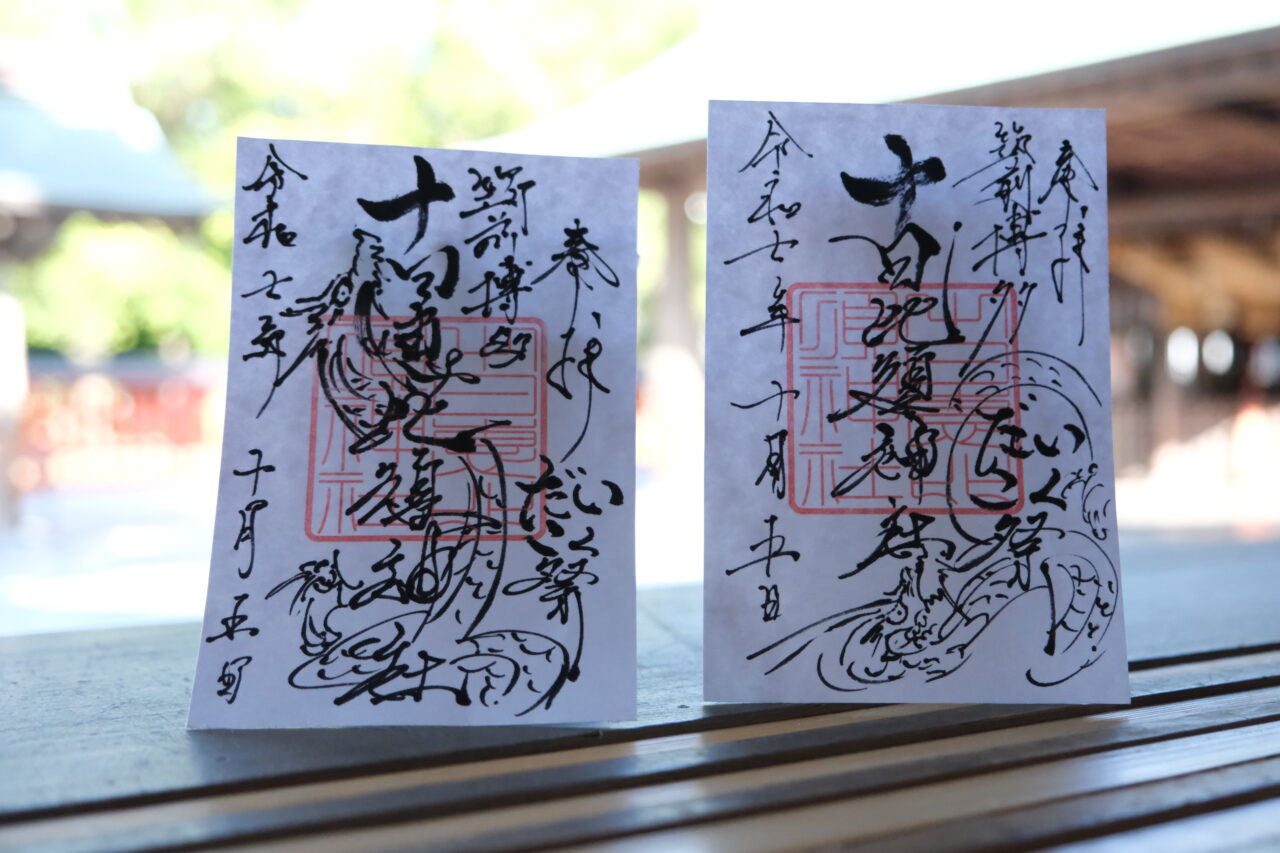 奉拝
筑前博多
だいこく祭
十日恵比須神社
令和七年十月五日
奉拝
筑前博多
だいこく祭
十日恵比須神社
令和七年十月五日